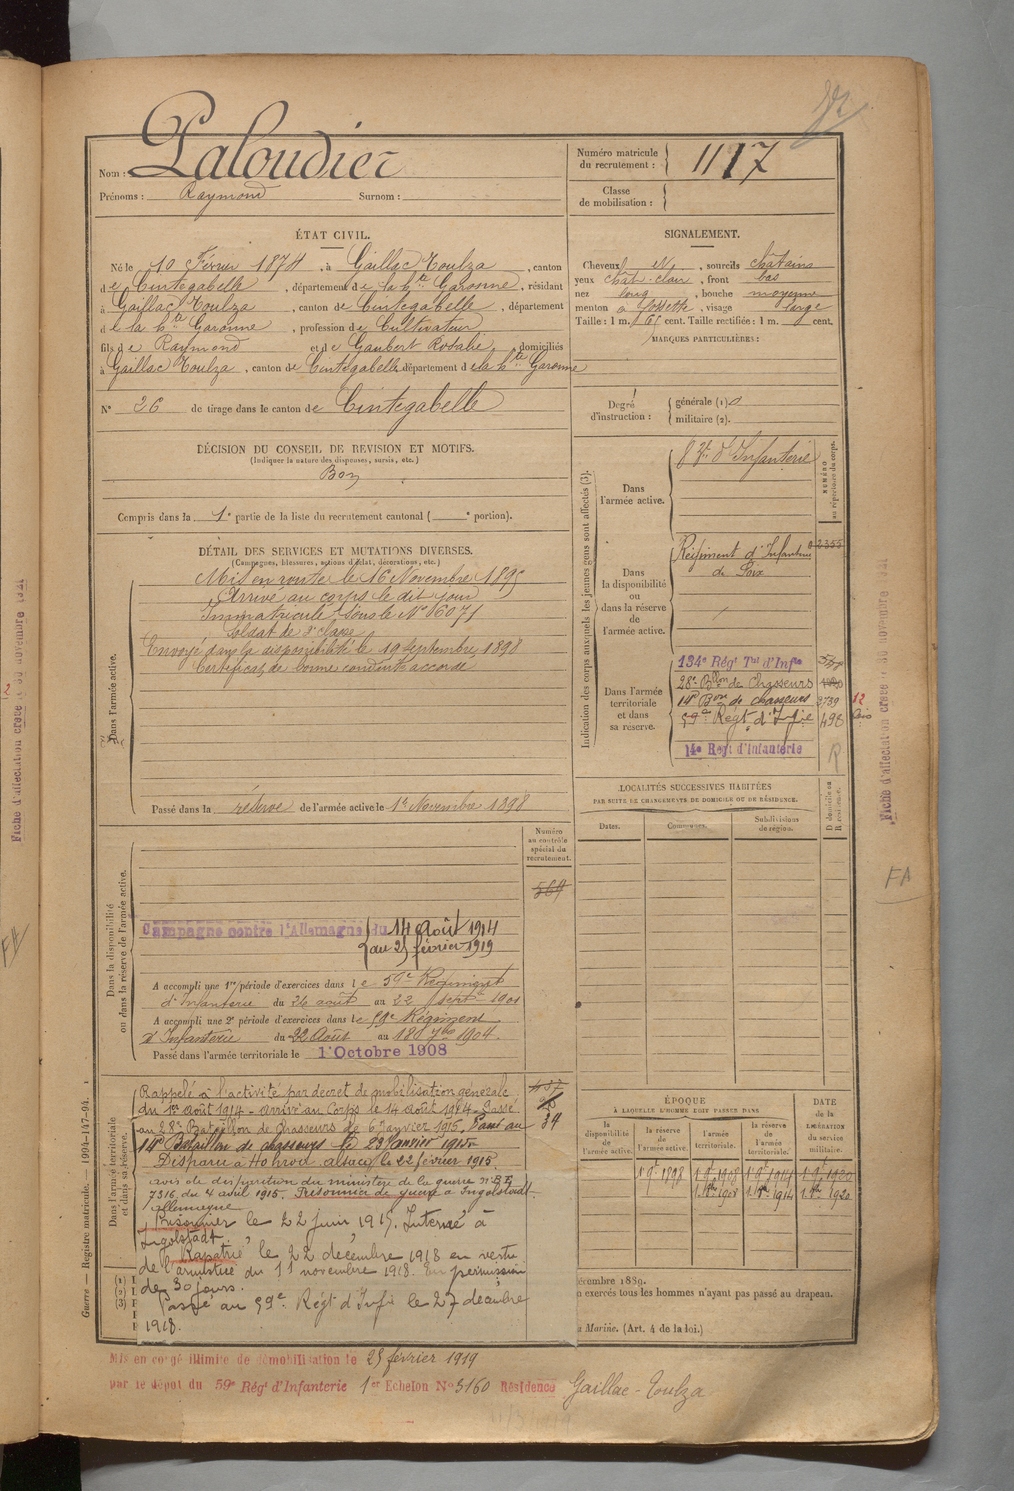 Nom : Paloudier
Prénoms : Raymond Surnom :
Numéro matricule du recrutement : 1117
Classe de mobilisation :
ÉTAT CIVIL.
Né le 10 Février 1874, à Gaillac Toulza, canton
de Cintegabelle, département de la hte Garonne, résidant
à Gaillac Toulza, canton de Cintegabelle, département
de la hte Garonne, profession de Cultivateur
fils de Raymond et de Gaubert Rosalie, domiciliés
à Gaillac Toulza, canton de Cintegabelle, département de la hte Garonne
N° 26 de tirage dans le canton de Cintegabelle
SIGNALEMENT.
Cheveux, sourcils châtains
yeux chât-clair, front bas
nez long, bouche moyenne
menton à fossette, visage large
Taille : 1 m. cent. Taille rectifiée : 1 m. cent.
MARQUES PARTICULIÈRES :
Degré d'instruction : générale (1)
militaire (2).
DÉCISION DU CONSEIL DE REVISION ET MOTIFS.
(Indiquer la nature des dispenses, sursis, etc.)
Bon
Compris dans la 1e partie de la liste du recrutement cantonal ( e portion).
DÉTAIL DES SERVICES ET MUTATIONS DIVERSES.
(Campagnes, blessures, actions d'éclat, décorations, etc.)
Dans l'armée active.
Mis en route le 16 Novembre 1895
Arrivé au corps le dit jour
Immatriculé sous le N° 16071
Soldat de 2e classe
Envoyé dans la disponibilité le 19 septembre 1898
Certificat de bonne conduite accordé
Passé dans la réserve de l'armée active le 1er Novembre 1898
Indication des corps auxquels les jeunes gens sont affectés (3).
NUMÉRO au répertoire du corps.
Dans l'armée active.
d'Infanterie
Dans la disponibilité ou dans la réserve de l'armée active.
Régiment d'Infanterie
de Foix
2355
Dans l'armée territoriale et dans sa réserve.
134e Régt Tal d'Infie
28e Bllon de Chasseurs
14e Bon de chasseurs 3739
59e Régt d'Infie 498
14e Régt d'Infanterie R
12
LOCALITÉS SUCCESSIVES HABITÉES
PAR SUITE DE CHANGEMENTS DE DOMICILE OU DE RÉSIDENCE.
Dates. Communes. Subdivisions de région. D domicile ou R résidence.
Numéro au contrôle spécial du recrutement.
569
Dans la disponibilité ou dans la réserve de l'armée active.
Campagne contre l'Allemagne du 14 Août 1914
au 25 février 1919
A accompli une 1re période d'exercices dans le 59e Régiment
d'Infanterie du 26 août au 22 septe 1901
A accompli une 2e période d'exercices dans le 59e Régiment
d'Infanterie du 22 Août au 18 7bre 1904.
Passé dans l'armée territoriale le 1er Octobre 1908
Dans l'armée territoriale et dans sa réserve.
Rappelé à l'activité par décret de mobilisation générale
du 1er août 1914 - arrivé au Corps le 14 août 1914. Passé
au 28e Bataillon de Chasseurs le 6 janvier 1915. Passé au
14e Bataillon de chasseurs le 23 janvier 1915
Disparu à Hohrod alsace le 22 février 1915.
avis de disparition du ministère de la guerre n° BF
7316 du 4 avril 1915. Prisonnier de guerre à Ingolstadt.
allemagne
Prisonnier le 22 juin 1915. Interné à
Ingolstadt.
Rapatrié le 22 décembre 1918 en vertu
de l'armistice du 11 novembre 1918. En permission
de 30 jours.
Passé au 59e Régt d'Infie le 27 décembre
1918.
34
ÉPOQUE
À LAQUELLE L'HOMME DOIT PASSER DANS
DATE de la LIBÉRATION du service militaire.
la disponibilité de l'armée active. la réserve de l'armée active. l'armée territoriale. la réserve de l'armée territoriale.
1 9e 1898 1 9e 1908 1 9e 1914 1 9e 1920
1 8bre 1908 1 8bre 1914 1 8bre 1920
(1)
(2)
(3)
décembre 1889.
exercés tous les hommes n'ayant pas passé au drapeau.
Marine. (Art. 4 de la loi.)
Mis en congé illimité de démobilisation le 25 février 1919
par le dépot du 59e Régt d'Infanterie 1er Echelon N° 3160 Résidence Gaillac-Toulza
Guerre — Registre matricule. — 1994-147-94.
Fiche d'affectation créée le 30 novembre 1921
FA
Fiche d'affectation créée le 30 novembre 1921
FA